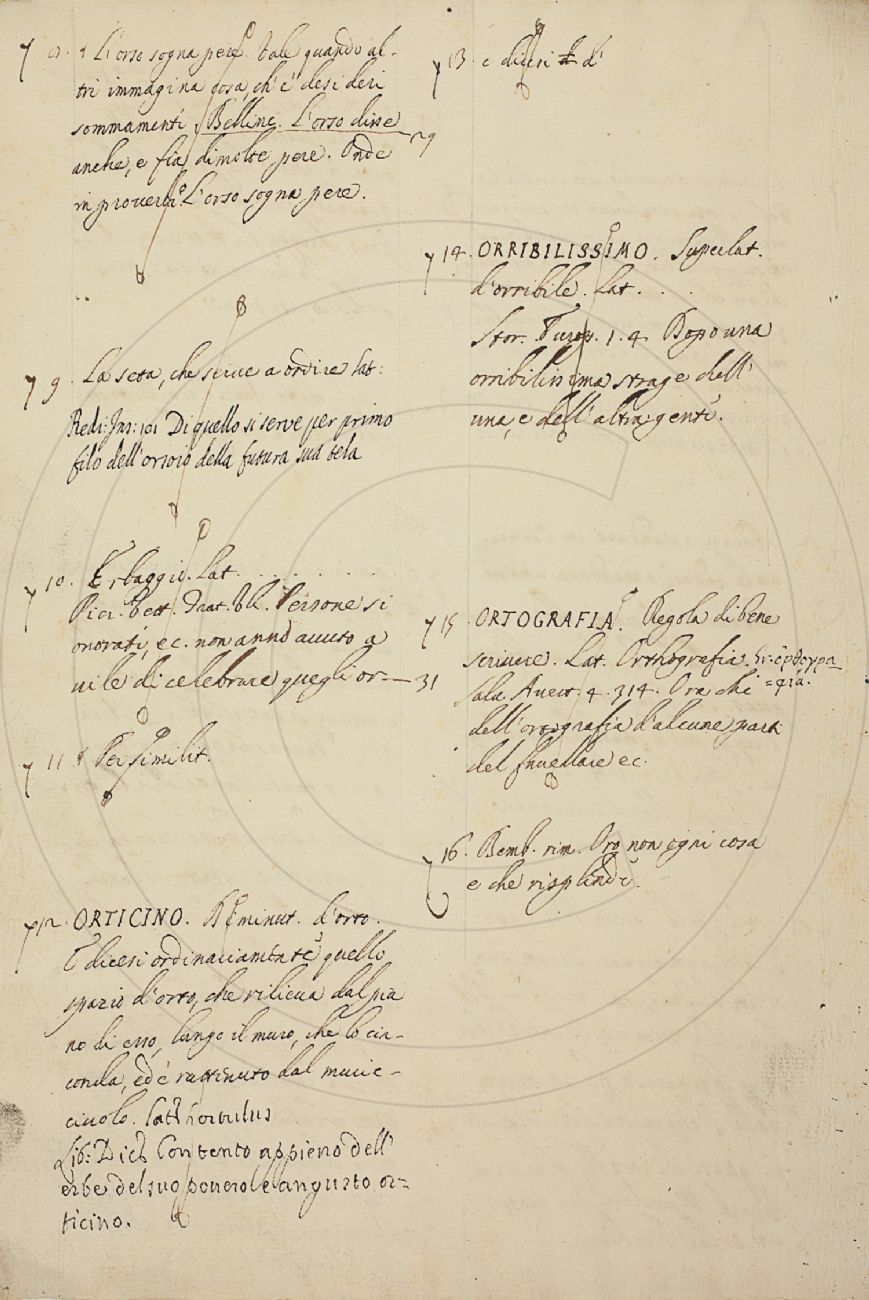 L'orso sogna pere. Vale quando al-
tri immagina cosa, ch'e' desideri
sommamente. Bellinc. L'orso disse
anche, e fia di molte pere. Onde 29
in proverb. L'orso sogna pere.
9. La seta, che serve a ordire Lat:
Redi: Ins: 101 Di quello si serve per primo
filo dell'orsoio della futura sua tela
10. Erbaggio. Lat. . . . . .
Pier. Vett. Trat. Vl. Persone si
onorati, ec. non anno avuto a
vile di celebrare quegli or- 31
11 Per similit.
12. ORTICINO. Diminut. d'orto.
E dicesi ordinariamente quello
spazio d'orto, che rilieva dal pia
no di esso, lungo il muro, che lo cir-
conda, ed è rattenuto dal muric-
ciuolo. Lat. hortulus
Lib: Dicer. Contento appieno dell'
erbe del suo povero, e angusto or=
ticino.
13. e dicesi di
14. ORRIBILISSIMO. Superlat.
d'orribile. Lat. . . .
Stor. Europ. 1. 4. Dopo una
orribilissima strage dell'
una, e dell'altra gente.
15 ORTOGRAFIA. Regola di bene
scrivere. Lat. Orthografia. Gr: ὀρθογρα
=φία.
Salv. Avert. 4. 314. Ora chi
dell'ortografia d'alcune parti
del favellare ec.
16. Bemb. rim. Oro non ogni cosa
e che risplende.